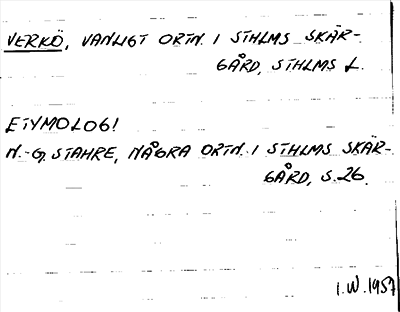 VERKÖ, VANLIGT ORTN. I STHLMS SKÄR-
GÅRD, STHLMS L.
ETYMOLOG!
N.-G. STAHRE, NÅGRA ORTN. I STHLMS SKÄR-
GÅRD, S. 26.
I.W. 1957